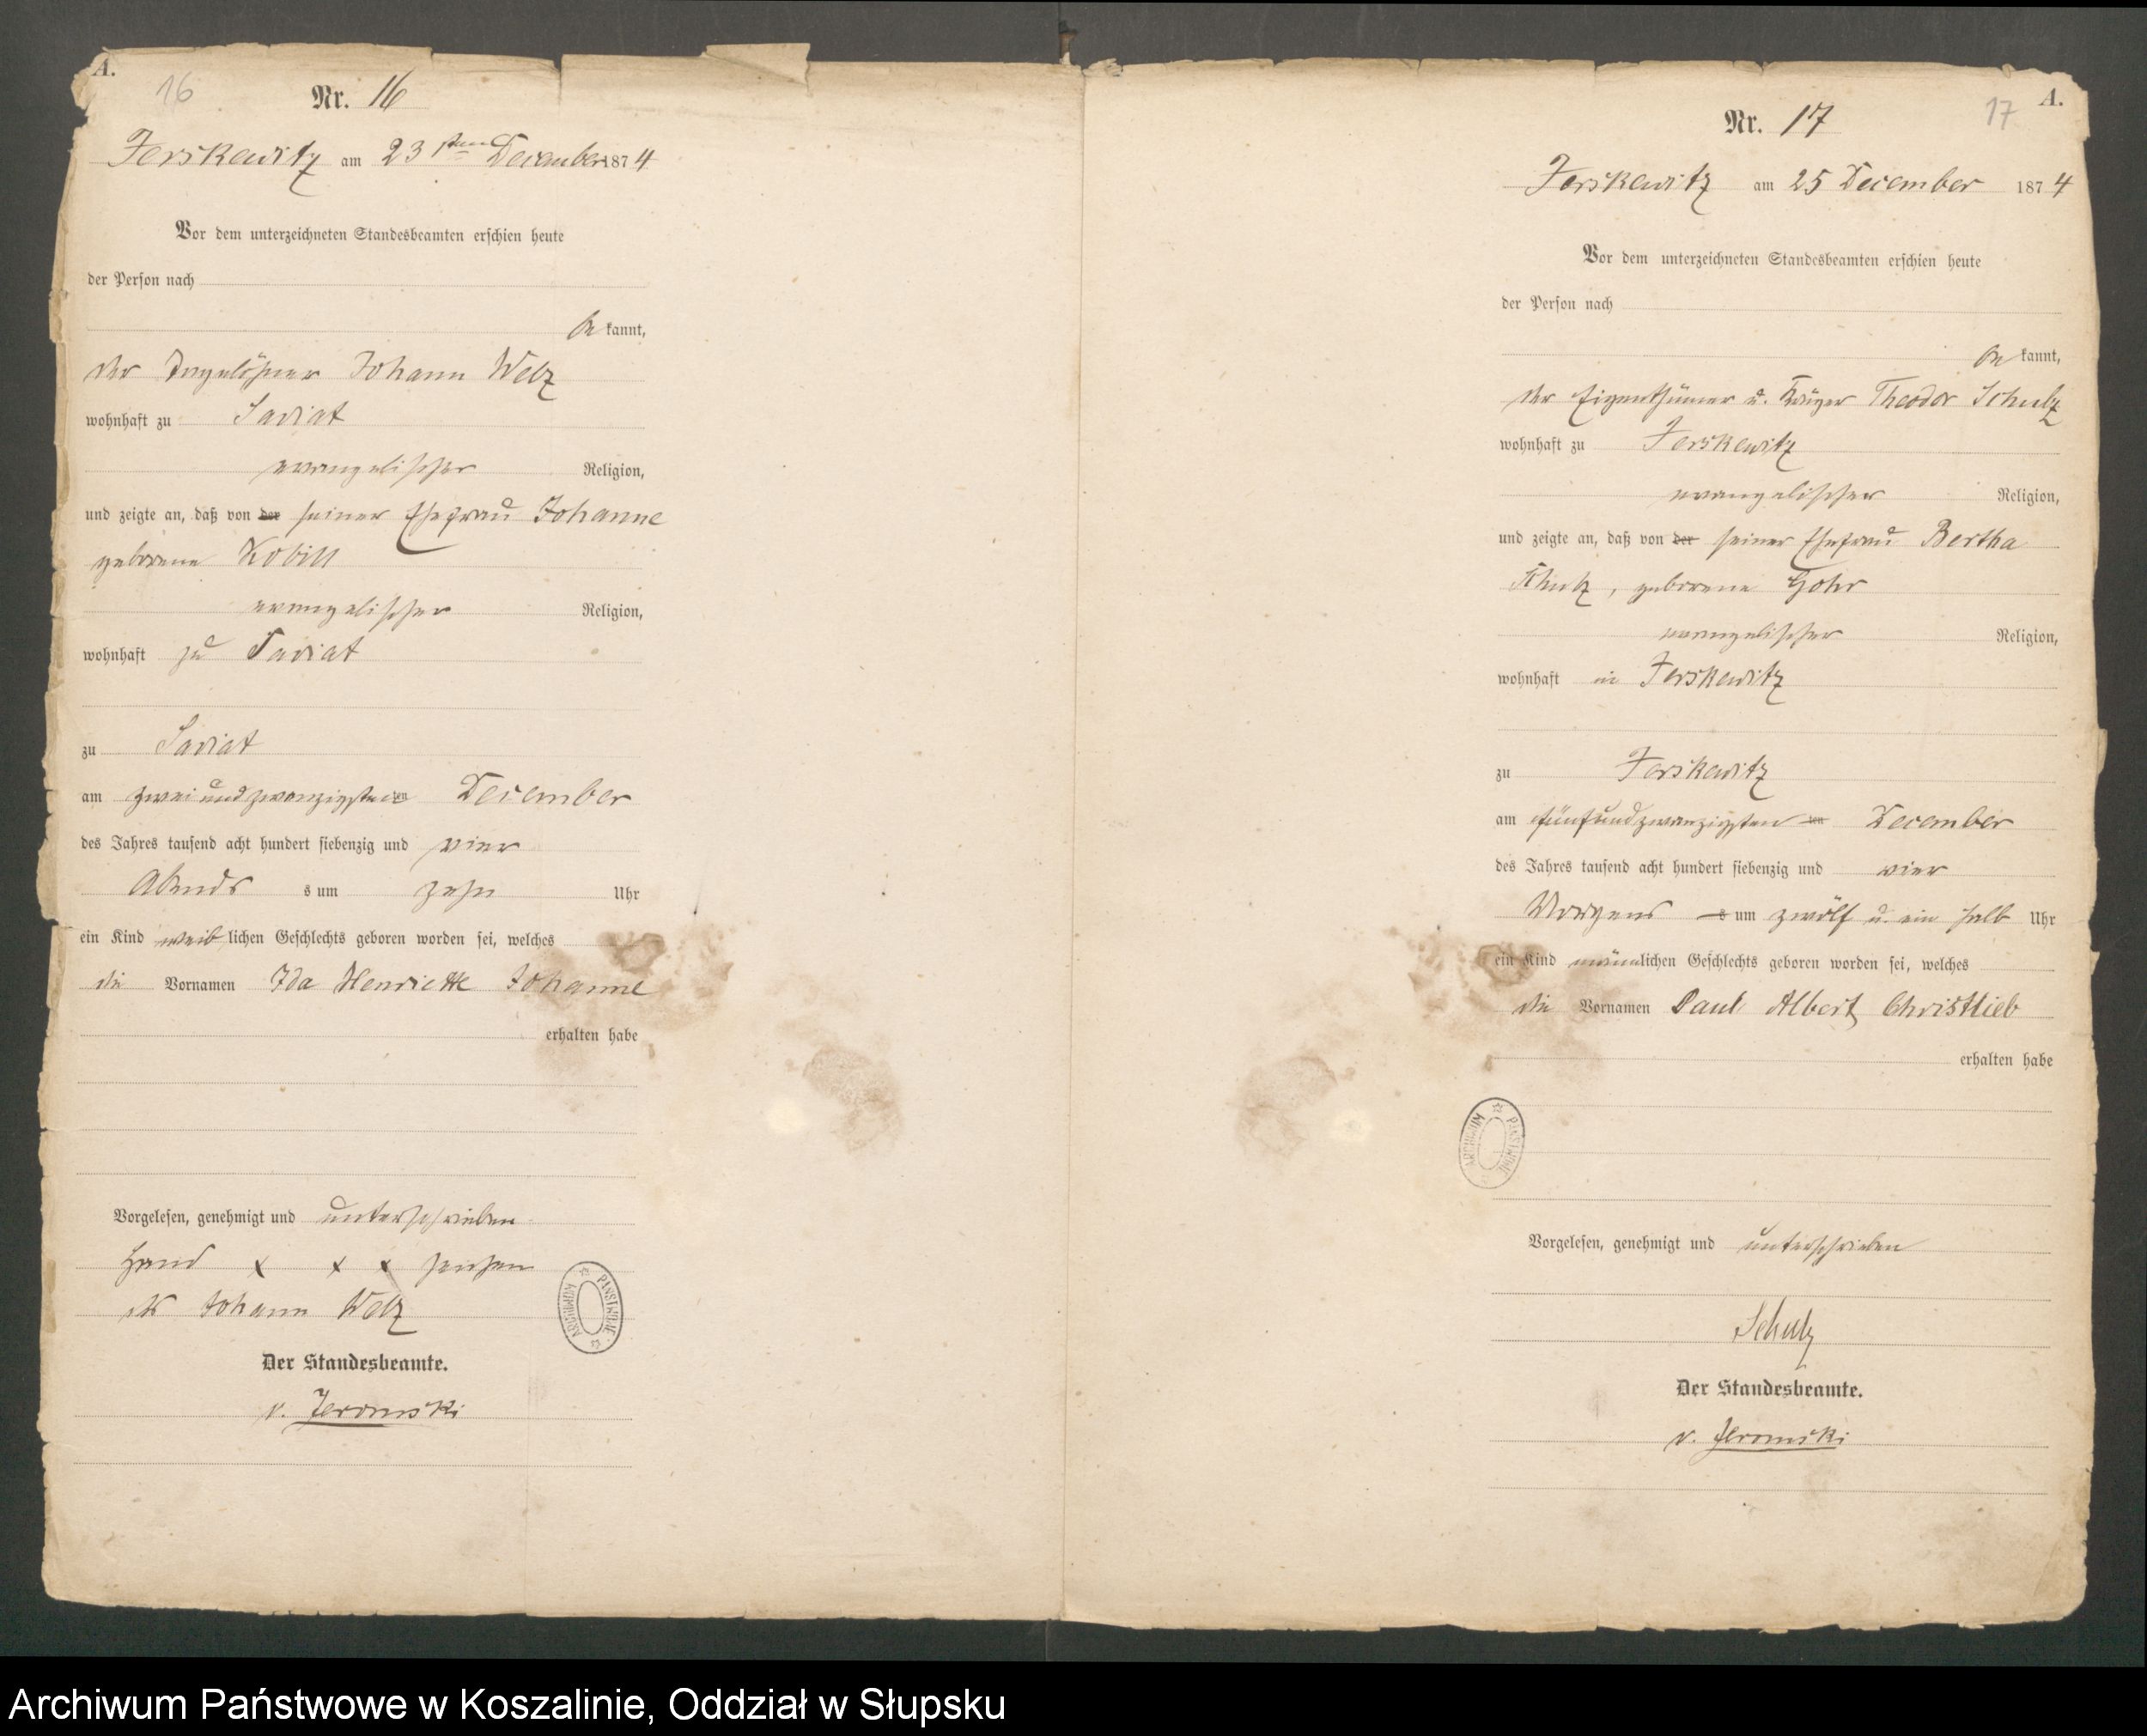 A.
16
Nr. 16
Jerskewitz am 23sten December 1874
Vor dem unterzeichneten Standesbeamten erschien heute
der Person nach
be kannt,
der Tagelöhner Johann Welz
wohnhaft zu Saviat
evangelischer Religion,
und zeigte an, daß von der seiner Ehefrau Johanne
geborene
evangelischer Religion,
wohnhaft zu Saviat
zu Saviat
am zwei und zwanzigsten ten December
des Jahres tausend acht hundert siebenzig und vier
Abends s um zehn Uhr
ein Kind weib lichen Geschlechts geboren worden sei, welches
die Vornamen Ida Henriette Johanne
erhalten habe
Vorgelesen, genehmigt und unterschrieben
Hand x x x
des Johann Welz
Der Standesbeamte.
v. Jeromski
ARCHIWUM PAŃSTWOWE
A.
17
Nr. 17
Jerskewitz am 25 December 1874
Vor dem unterzeichneten Standesbeamten erschien heute
der Person nach
be kannt,
der Eigenthümer u. Krüger Theodor Schulz
wohnhaft zu Jerskewitz
evangelischer Religion,
und zeigte an, daß von der seiner Ehefrau Bertha
Schulz, geborene Gohr
evangelischer Religion,
wohnhaft in Jerskewitz
zu Jerskewitz
am fünfundzwanzigsten ten December
des Jahres tausend acht hundert siebenzig und vier
Morgens s um zwölf u. ein halb Uhr
ein Kind männlichen Geschlechts geboren worden sei, welches
die Vornamen Paul Albert Christlieb
erhalten habe
ARCHIWUM PAŃSTWOWE
Vorgelesen, genehmigt und unterschrieben
Schulz
Der Standesbeamte.
v. Jeromski
Archiwum Państwowe w Koszalinie, Oddział w Słupsku